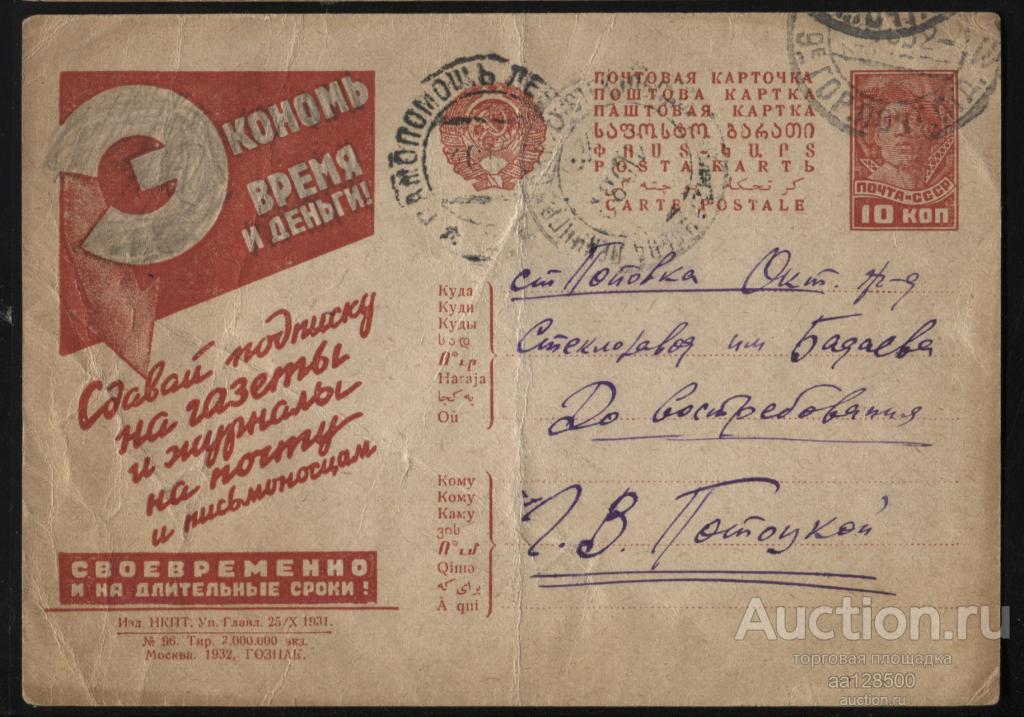 ЭКОНОМЬ
ВРЕМЯ
И ДЕНЬГИ!
Сдавай подписку
на газеты
и журналы
на почту
и письмоносцам
СВОЕВРЕМЕННО
И НА ДЛИТЕЛЬНЫЕ СРОКИ!
Изд. НКПТ. Уп. Главл. 25/X 1931.
№ 96. Тир. 2.000.000 экз.
Москва. 1932, ГОЗНАК.
ПОЧТОВАЯ КАРТОЧКА
ПОШТОВА КАРТКА
ПАШТОВАЯ КАРТКА
ᲡᲐᲤᲝᲡᲢᲝ ᲑᲐᲠᲐᲗᲘ
ФՈՍՏ-ՔԱՐՏ
POSTA KARTЬ
CARTE POSTALE
ПОЧТА-СССР
10 КОП
САМОПОМОЩЬ
Куда
Куди
Куды
სად
Ո՞ւր
Haraja
Où
ст Поповка Окт. ж-д
Стеклозавод им Бадаева
До востребования
Кому
Кому
Каму
ვის
Ո՞ւմ
Qimə
À qui
Г. В. Потоцкой
Auction.ru
торговая площадка
aa128500
auction.ru